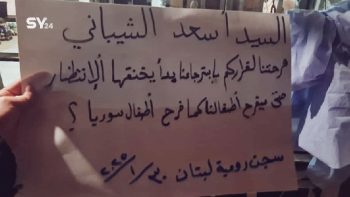 SY24
السيد أسعد الشيباني
فرحتنا لقراركم بإسترجاعنا بدأ يخنقها الإنتظار
متى سيفرح أطفالنا كما فرح أطفال سوريا ؟
سجن رومية لبنان ٣٠/١/٢٠٢٥